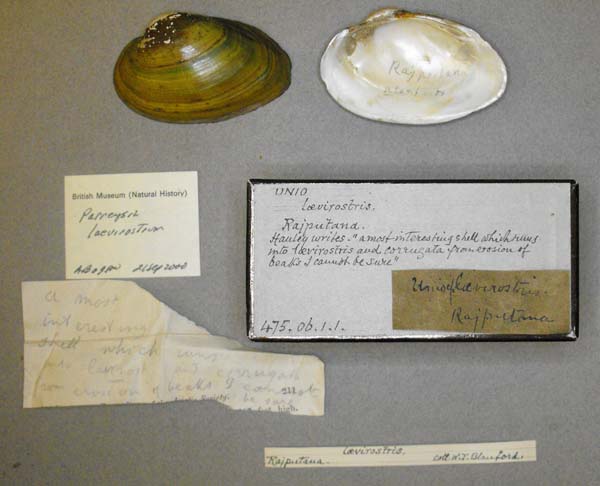 Rajputana
Blanford
British Museum (Natural History)
Parreysia
laevirostrum
A Bogan 21 Sep 2000
UNIO
lœvirostris.
Rajputana.
Hanley writes "a most interesting shell which runs
into lœvirostris and corrugata from erosion of
beaks I cannot be sure"
475. ob. 1. 1.
Unio lœvirostris.
Rajputana
a most
interesting
shell which runs
into lœvirost and corrugata
from erosion of beaks I cannot
be sure
lœvirostris.
Rajputana. Coll. W.T. Blanford.